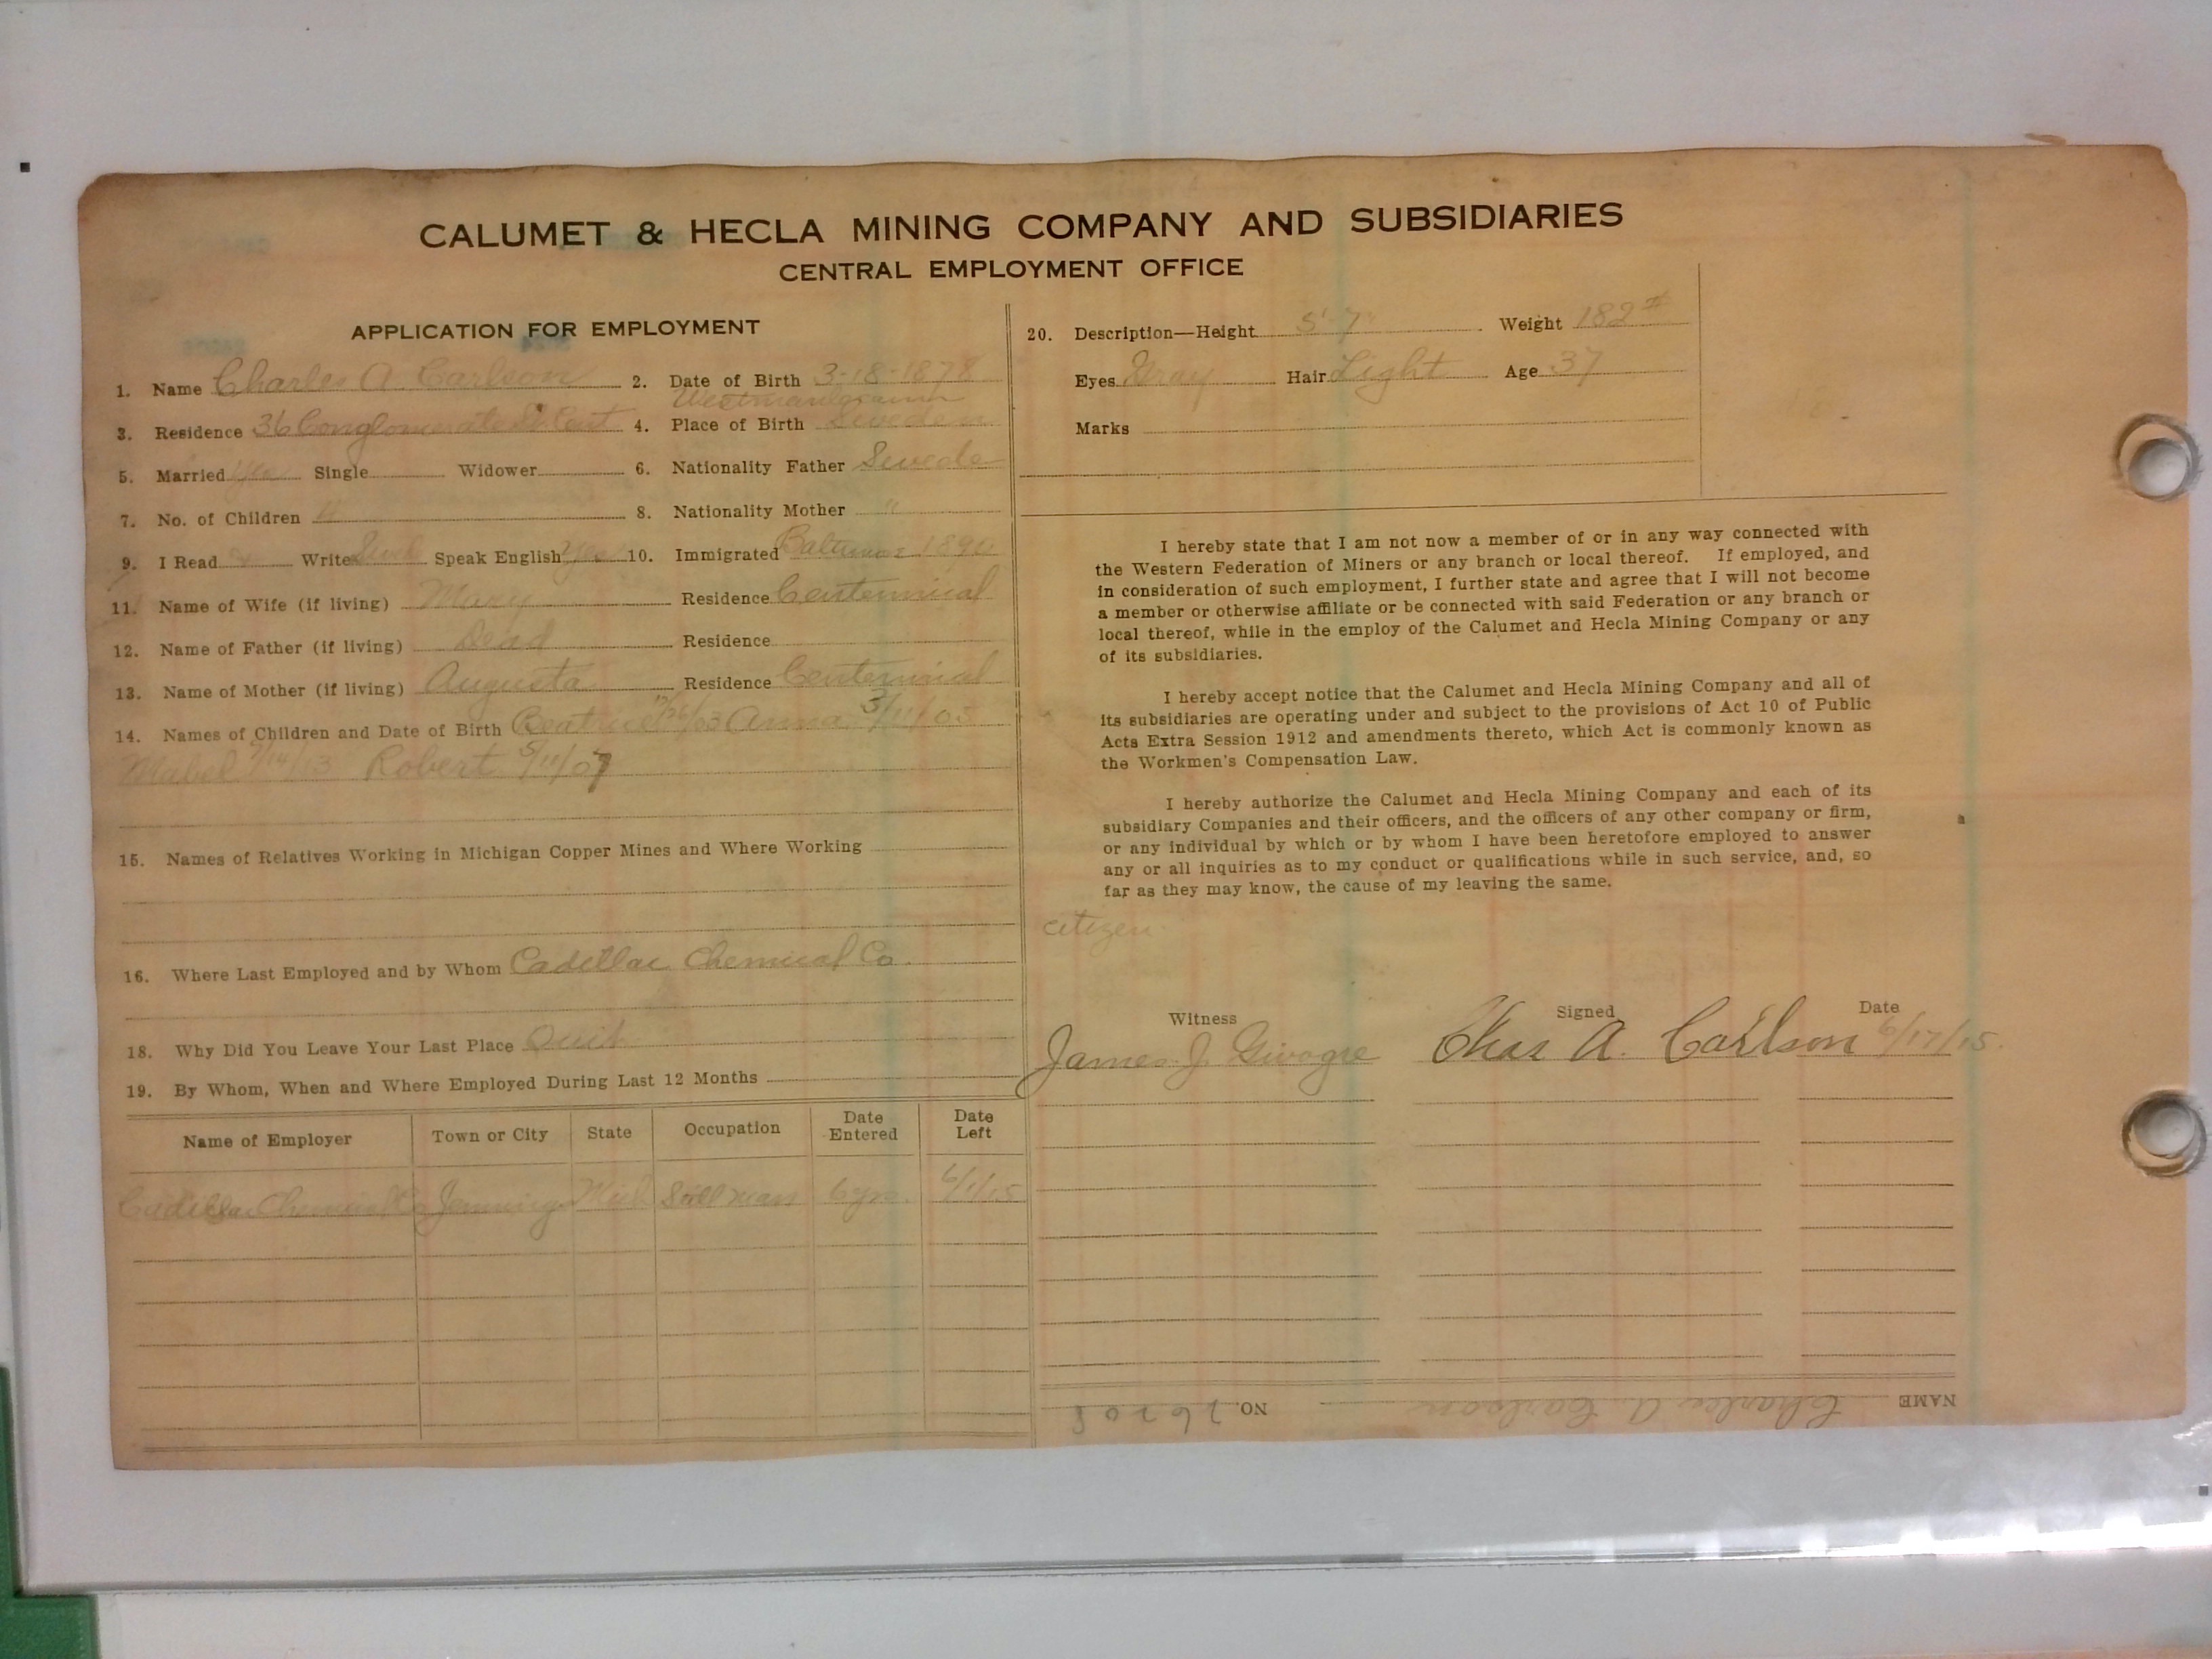 CALUMET & HECLA MINING COMPANY AND SUBSIDIARIES
CENTRAL EMPLOYMENT OFFICE
APPLICATION FOR EMPLOYMENT
1. Name Charles A. Carlson 2. Date of Birth 3-18-1878
3. Residence 36 Conglomerate St. 4. Place of Birth Sweden
5. Married Yes Single Widower 6. Nationality Father Swede
7. No. of Children 4 8. Nationality Mother "
9. I Read Write Speak English Yes 10. Immigrated 1890
11. Name of Wife (if living) Mary Residence Centennial
12. Name of Father (if living) Dead Residence
13. Name of Mother (if living) Augusta Residence Centennial
14. Names of Children and Date of Birth Beatrice Anna
Mabel Robert 5/11/07
15. Names of Relatives Working in Michigan Copper Mines and Where Working
16. Where Last Employed and by Whom Cadillac Chemical Co.
18. Why Did You Leave Your Last Place Quit
19. By Whom, When and Where Employed During Last 12 Months
Name of Employer Town or City State Occupation Date Entered Date Left
Cadillac Chemical Co Jennings Mich Still man 6 yrs. 6/1/15
20. Description—Height 5'-7" Weight 182#
Eyes Gray Hair Light Age 37
Marks
I hereby state that I am not now a member of or in any way connected with
the Western Federation of Miners or any branch or local thereof. If employed, and
in consideration of such employment, I further state and agree that I will not become
a member or otherwise affiliate or be connected with said Federation or any branch or
local thereof, while in the employ of the Calumet and Hecla Mining Company or any
of its subsidiaries.
I hereby accept notice that the Calumet and Hecla Mining Company and all of
its subsidiaries are operating under and subject to the provisions of Act 10 of Public
Acts Extra Session 1912 and amendments thereto, which Act is commonly known as
the Workmen's Compensation Law.
I hereby authorize the Calumet and Hecla Mining Company and each of its
subsidiary Companies and their officers, and the officers of any other company or firm,
or any individual by which or by whom I have been heretofore employed to answer
any or all inquiries as to my conduct or qualifications while in such service, and, so
far as they may know, the cause of my leaving the same.
citizen
Witness Signed Date
James J. Chas A. Carlson 6/17/15.
NAME Charles A. Carlson NO.